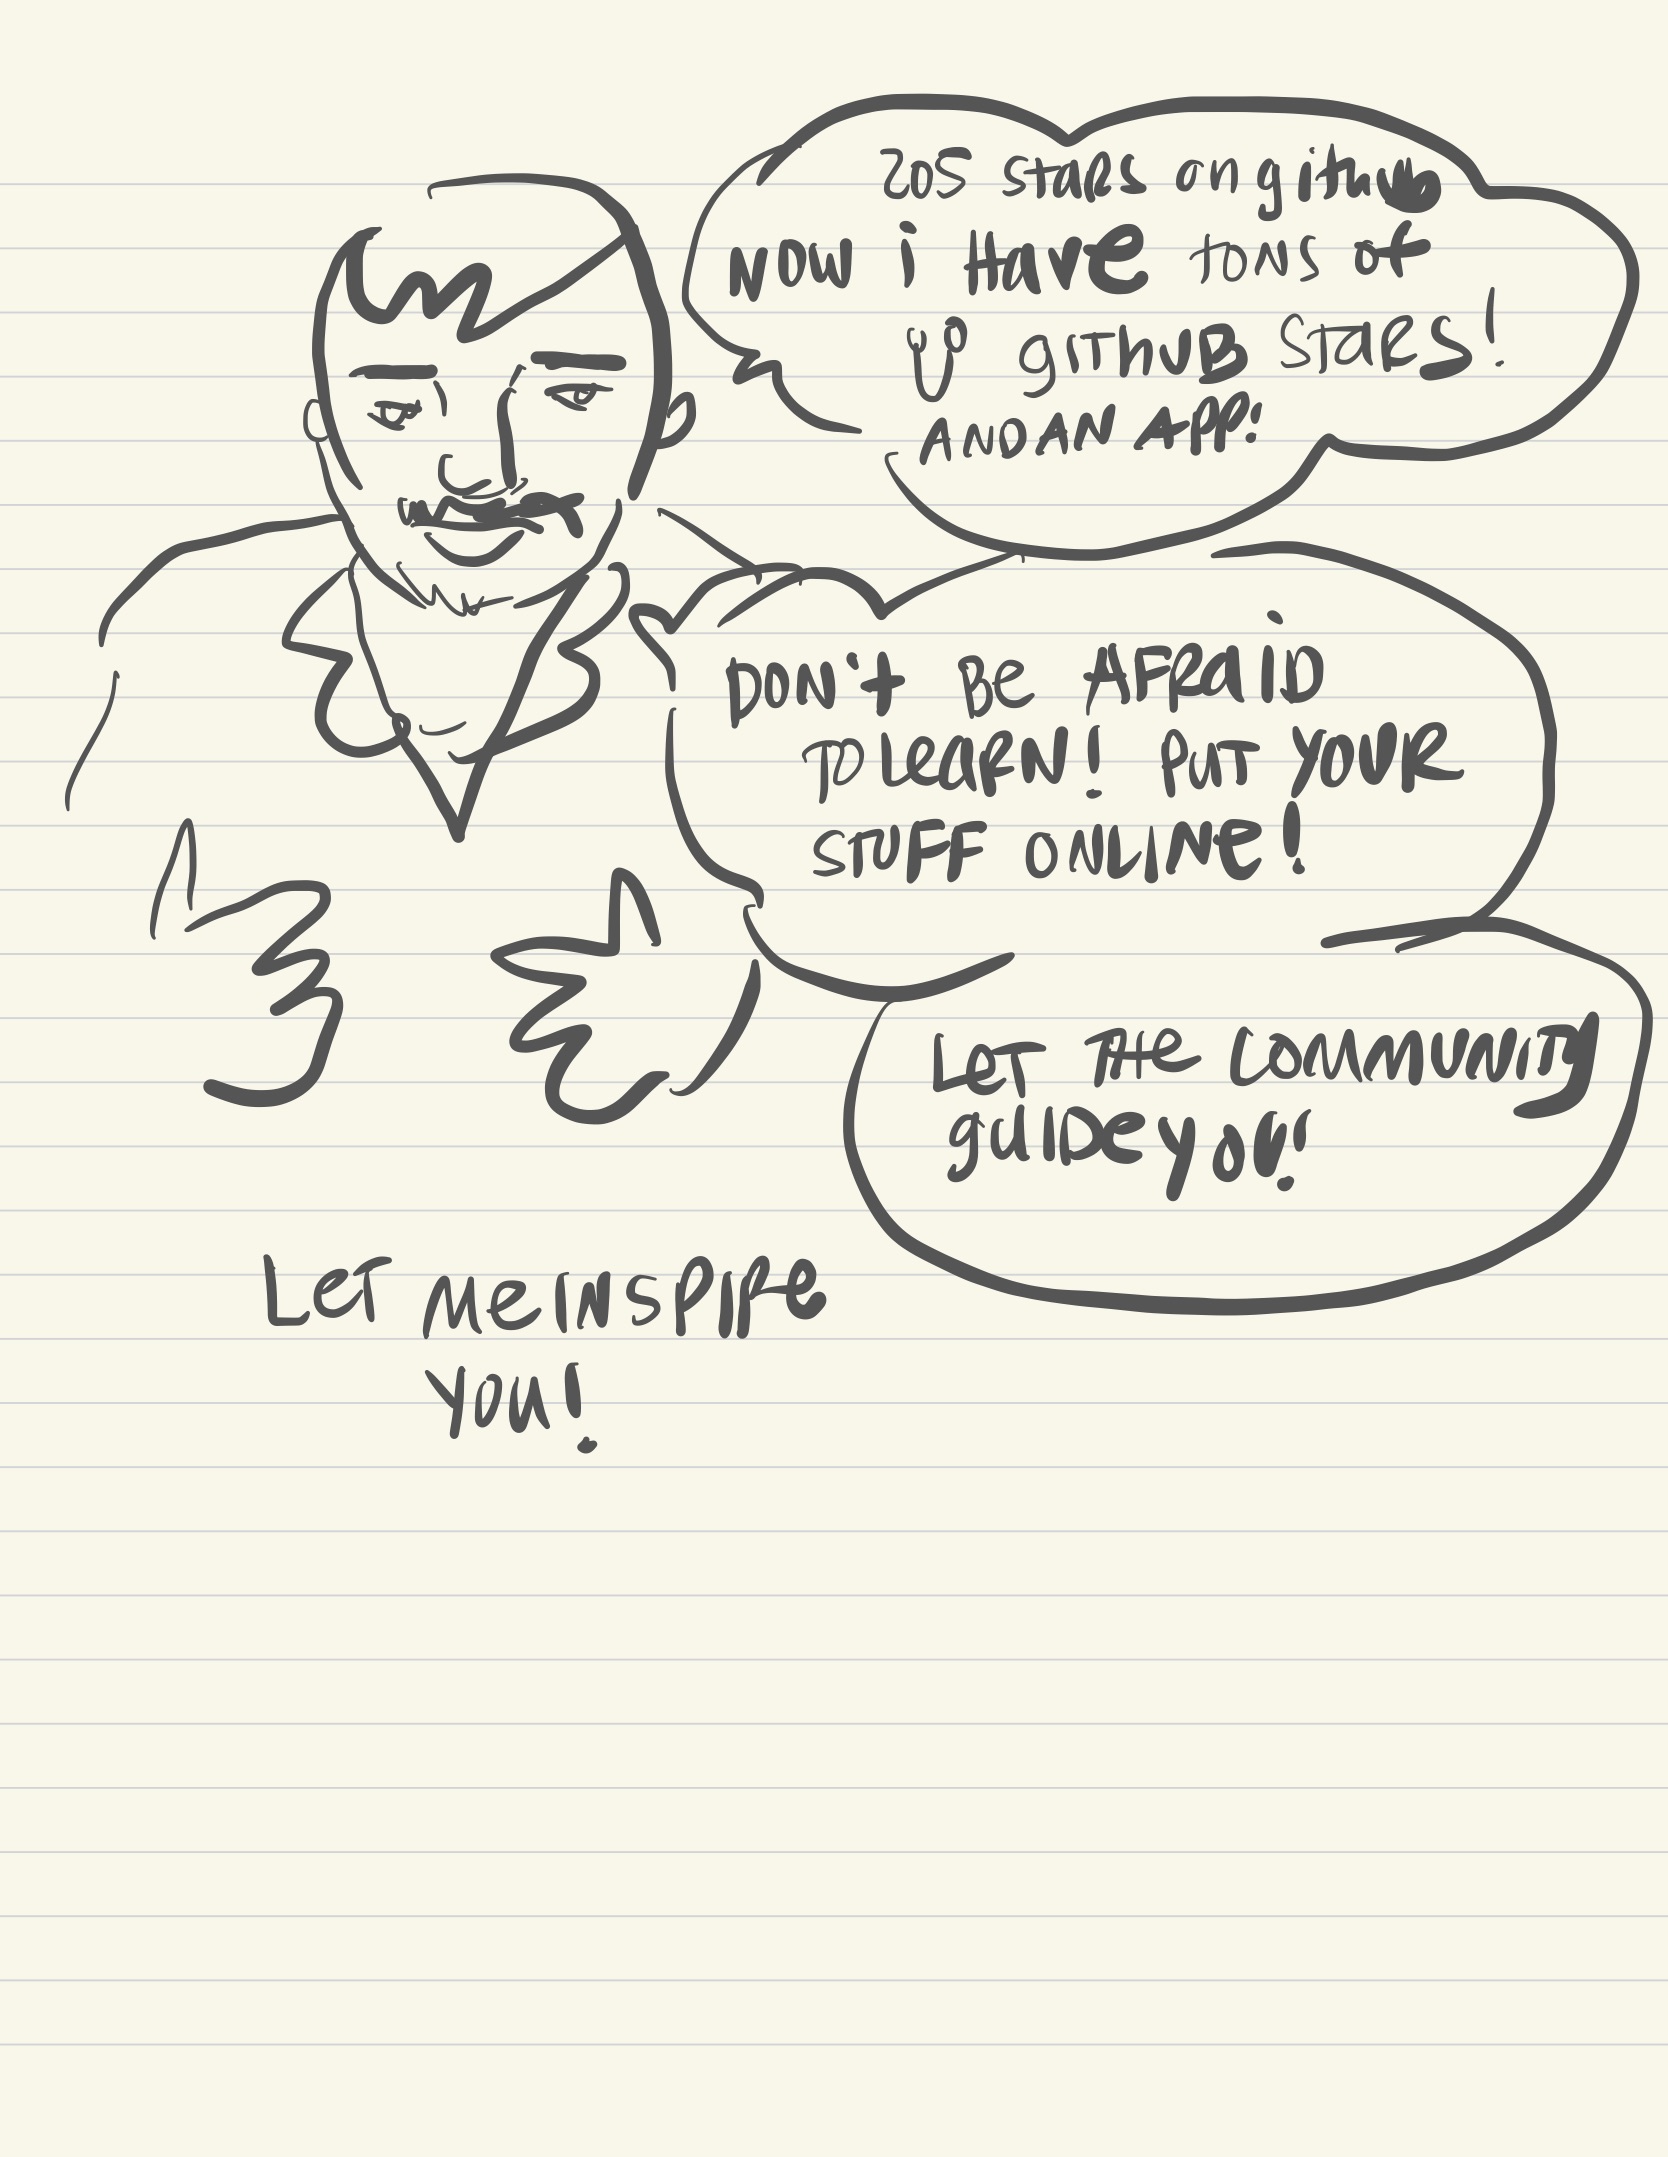 205 stars on github
NOW i Have TONS of
github STARS!
AND AN APP!
DON't Be AFRaiD
TO LeaRN! PUT YOUR
STUFF ONLINe!
LeT THe COMMUNITy
guiDe you!
LeT Me INSPIRe
YOU!